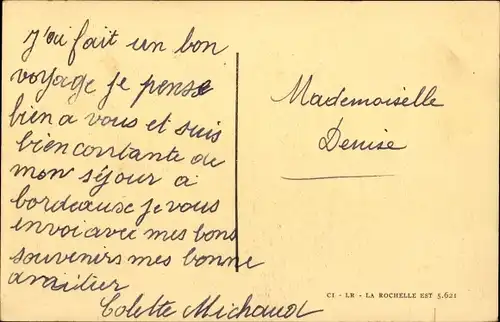 J'ai fait un bon
voyage je pense
bien a vous et suis
bien contante de
mon séjour a
bordeause je vous
envoi avec mes bons
souvenirs mes bonne
amitier
Colette Michaud
Mademoiselle
Denise
C1 - LR - LA ROCHELLE EST 5.621